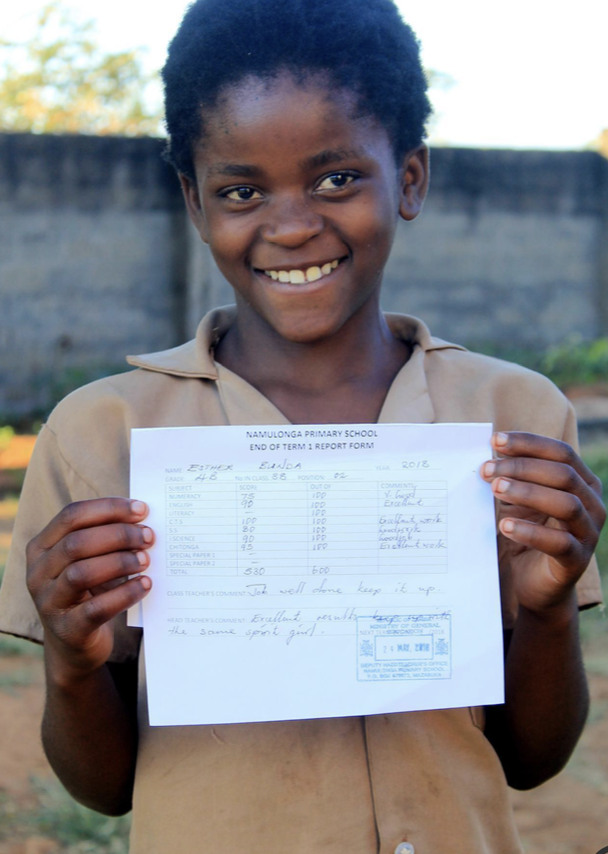 NAMULONGA PRIMARY SCHOOL
END OF TERM 1 REPORT FORM
NAME: ESTHER BANDA YEAR: 2018
GRADE 4B No IN CLASS 88 POSITION 02
SUBJECT SCORE OUT OF COMMENTS
NUMERACY 75 100 V. good
ENGLISH 90 100 Excellent
LITERACY – 100
C.T.S 100 100 Excellent work
S.S 80 100 Good work
I. SCIENCE 90 100 Good work
CHITONGA 95 100 Excellent work
SPECIAL PAPER 1 –
SPECIAL PAPER 2 –
TOTAL 530 600
CLASS TEACHER'S COMMENT: Job well done keep it up.
HEAD TEACHER'S COMMENT: Excellent results keep up with
the same spirit girl.
MINISTRY OF GENERAL
EDUCATION
MAY 2018
DEPUTY HEADTEACHER'S OFFICE
NAMULONGA PRIMARY SCHOOL
P.O. BOX MAZABUKA